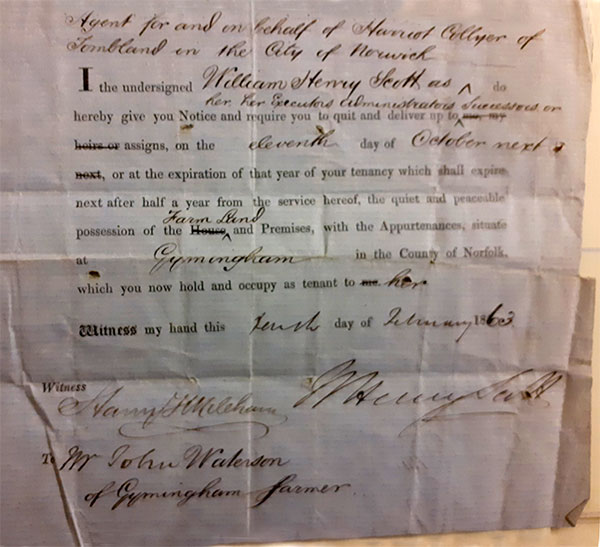 Agent for and on behalf of Harriot Collyer of
Tombland in the City of Norwick
I the undersigned William Henry Scott as ^ do
her, her Executors Administrators Successors or
hereby give you Notice and require you to quit and deliver up to ^ me, my
heirs or assigns, on the eleventh day of October next
next, or at the expiration of that year of your tenancy which shall expire
next after half a year from the service hereof, the quiet and peaceable
Farm Land
possession of the House ^ and Premises, with the Appurtenances, situate
at Gymingham in the County of Norfolk,
which you now hold and occupy as tenant to me her
Witness my hand this tenth day of February 1863
Witness
Henry Scott
To Mr John Waterson
of Gymingham farmer